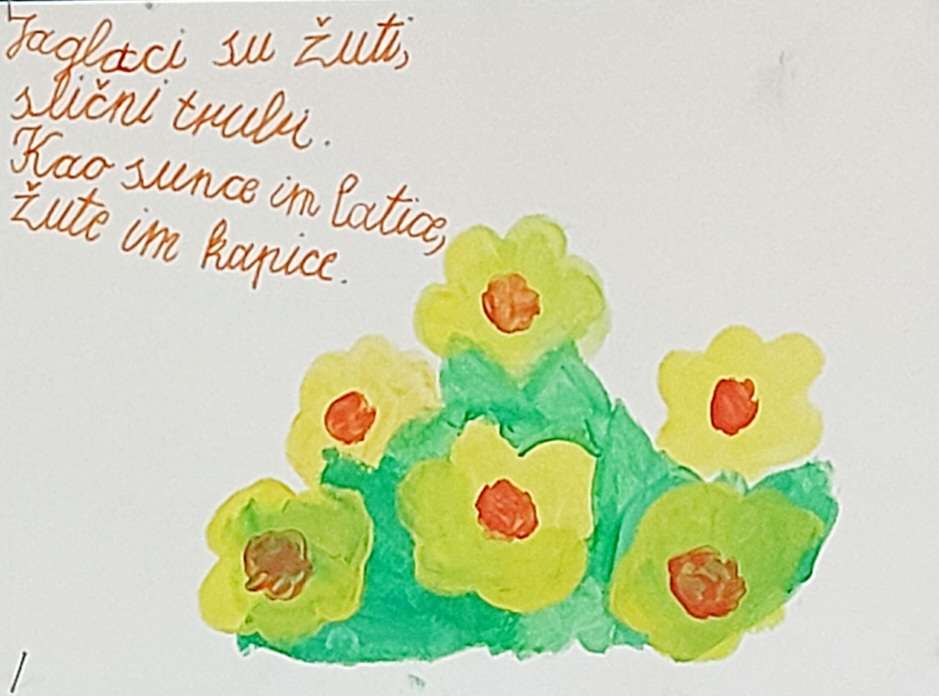 Jaglaci su žuti,
slični trubi.
Kao sunce im latice,
žute im kapice.